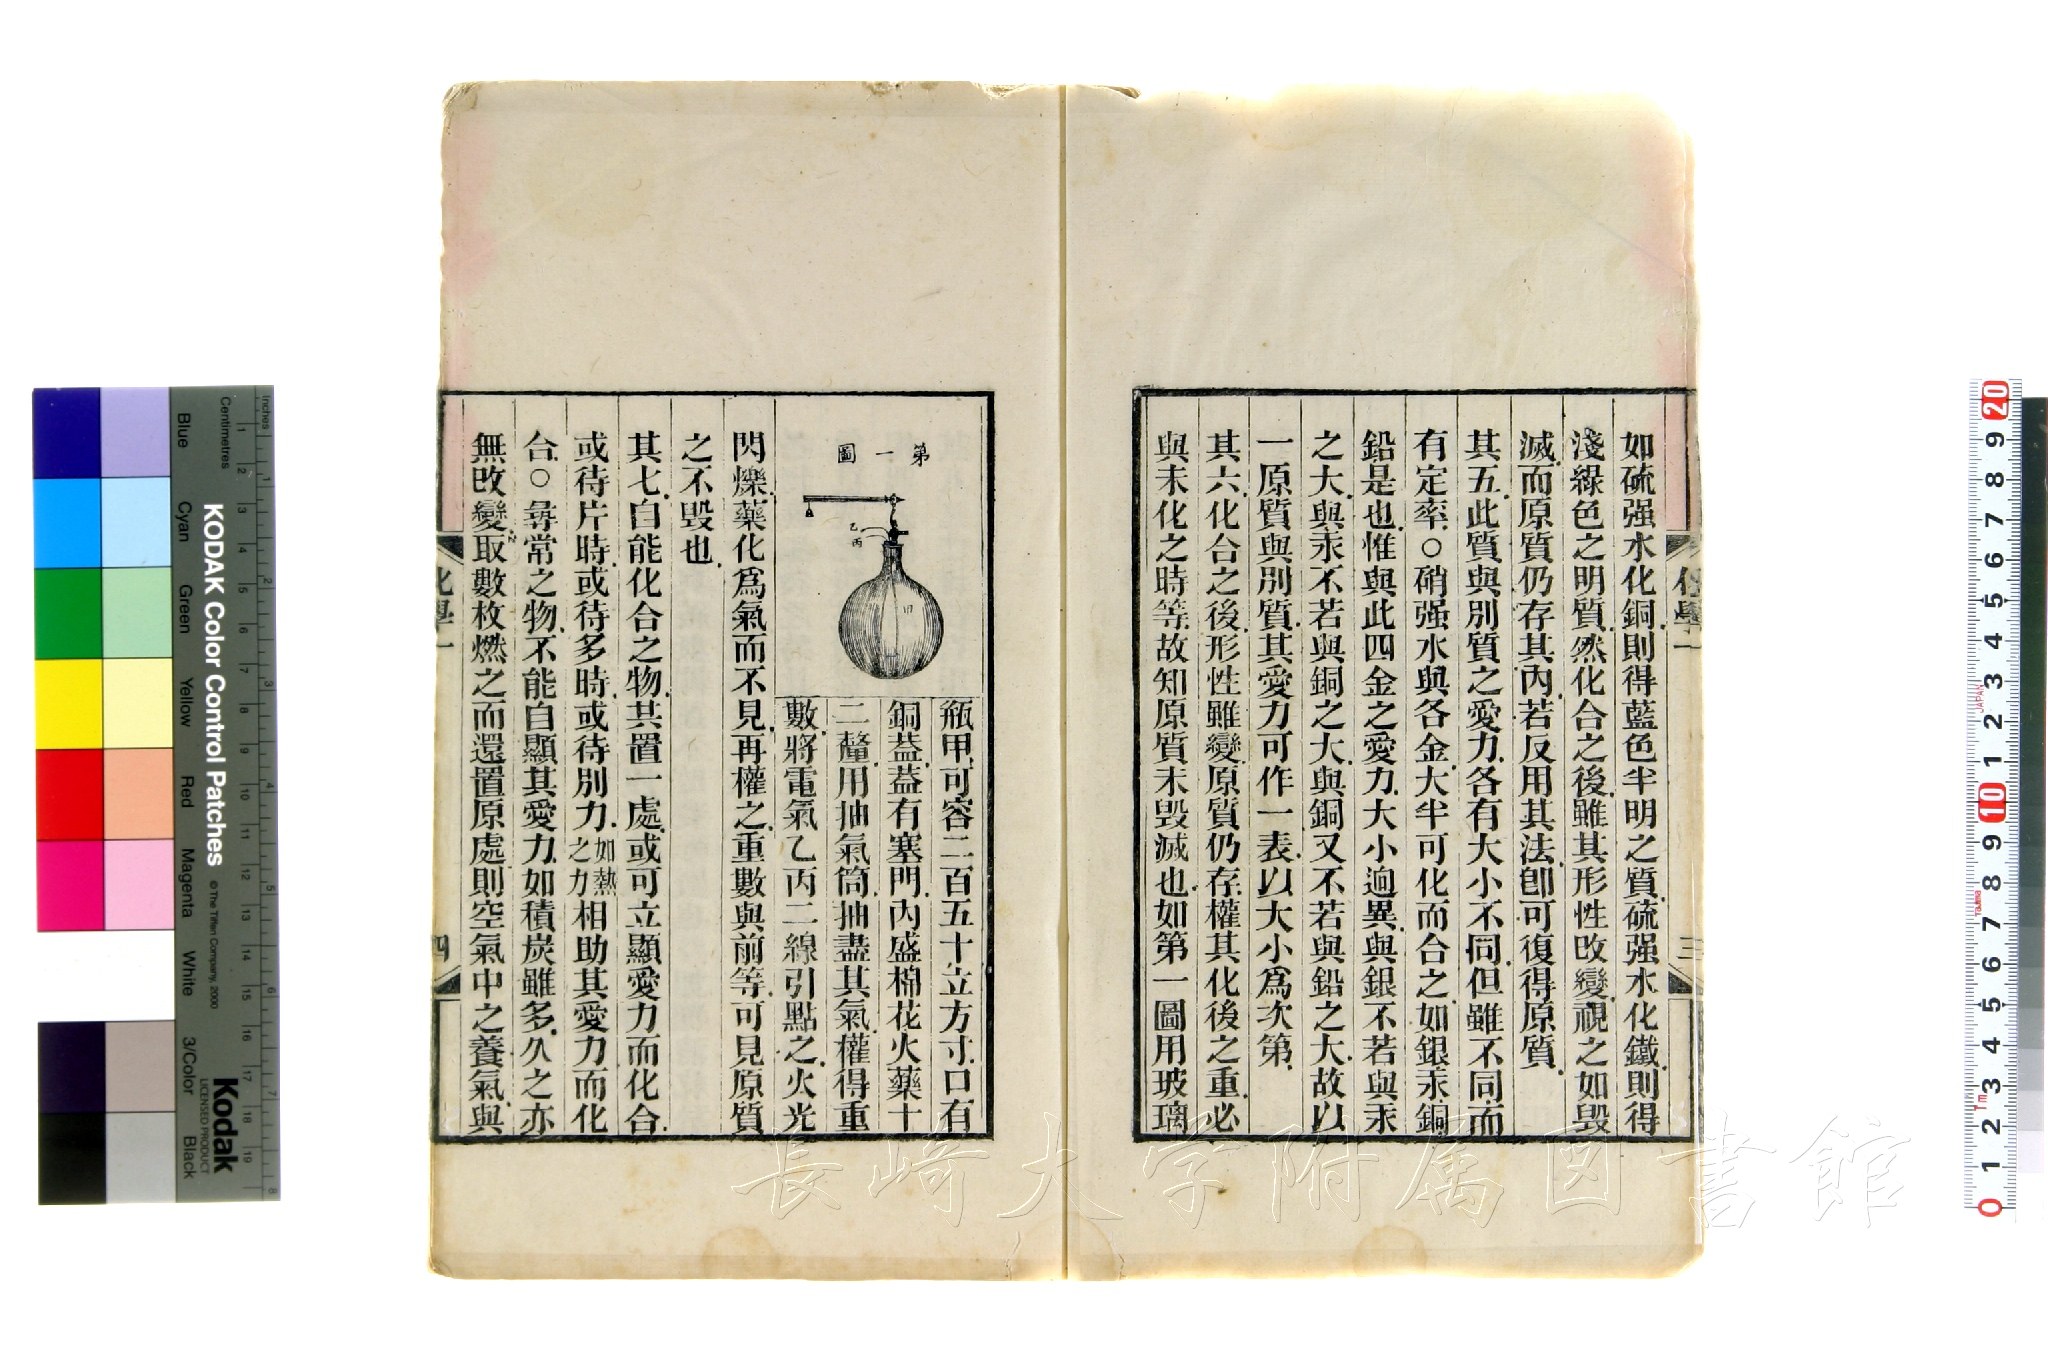 化學一
三
如硫强水化銅則得藍色半明之質硫强水化鐵則得
淺綠色之明質然化合之後雖其形性改變視之如毁
滅而原質仍存其內若反用其法卽可復得原質
其五此質與別質之愛力各有大小不同但雖不同而
有定率○硝强水與各金大半可化而合之如銀汞銅
鉛是也惟與此四金之愛力大小逈異與銀不若與汞
之大與汞不若與銅之大與銅又不若與鉛之大故以
一原質與別質其愛力可作一表以大小爲次第
其六化合之後形性雖變原質仍存權其化後之重必
與未化之時等故知原質未毁滅也如第一圖用玻璃
第一圖
乙
丙
甲
瓶甲可容二百五十立方寸口有
銅蓋蓋有塞門內盛棉花火藥十
二釐用抽氣筒抽盡其氣權得重
數將電氣乙丙二線引點之火光
閃爍藥化爲氣而不見再權之重數與前等可見原質
之不毁也
其七自能化合之物其置一處或可立顯愛力而化合
或待片時或待多時或待別力如熱之力相助其愛力而化
合○尋常之物不能自顯其愛力如積炭雖多久之亦
無改變取數枚燃之而還置原處則空氣中之養氣與
化學一
四
Inches
Centimetres
Blue
Cyan
Green
Yellow
Red
Magenta
White
3/Color
Black
KODAK Color Control Patches
© The Tiffen Company, 2000
Kodak
LICENSED PRODUCT
JAPAN
Tajima
1m
長崎大学附属図書館